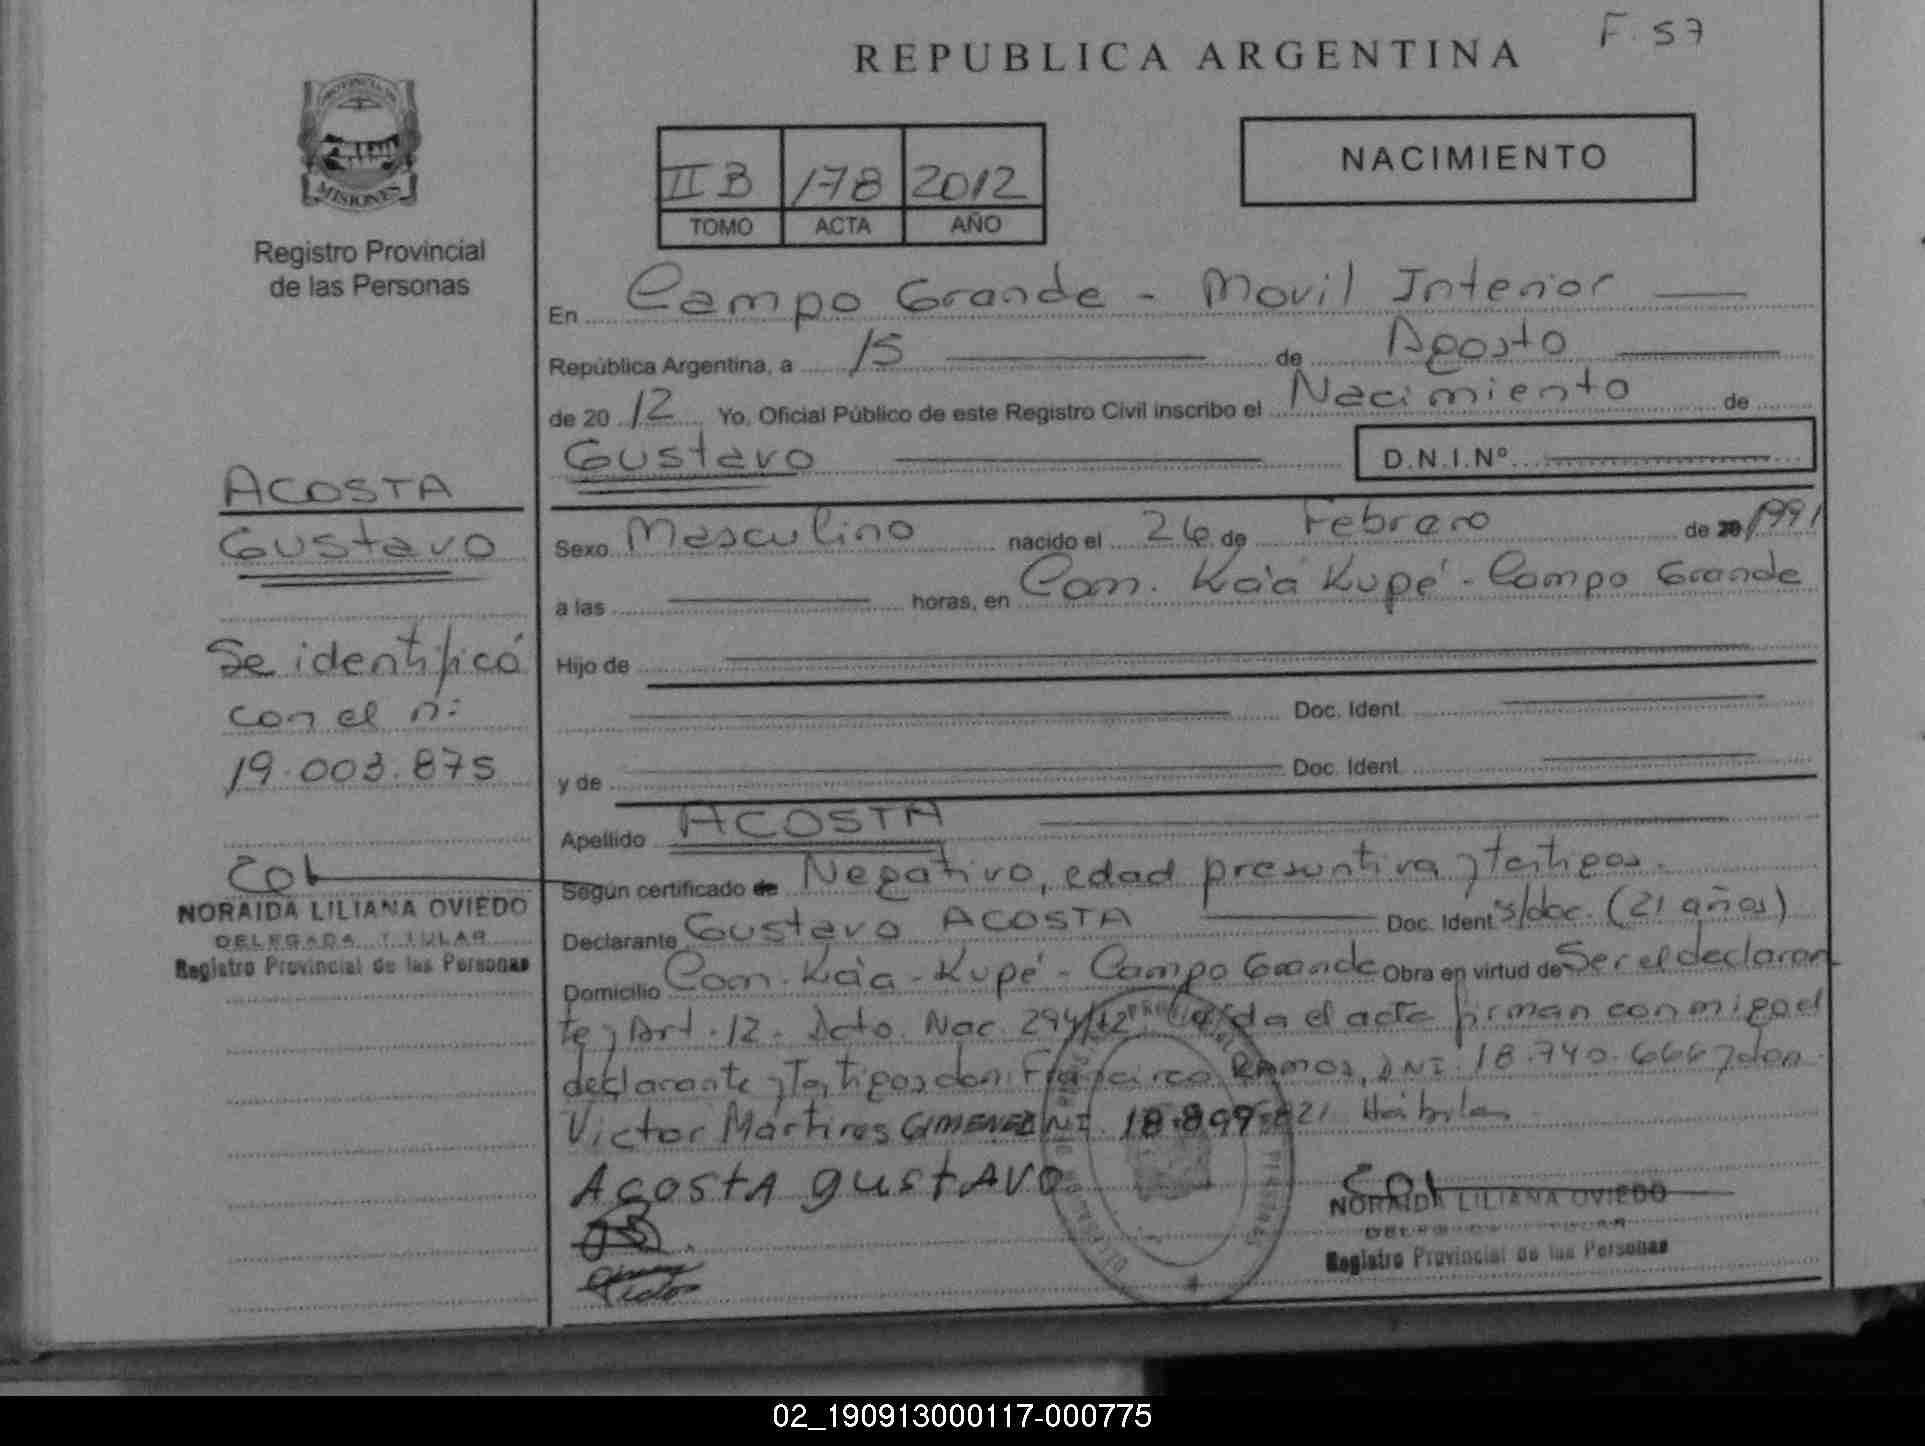 F. 57
REPUBLICA ARGENTINA
PROVINCIA DE
MISIONES
Registro Provincial
de las Personas
II B 178 2012
TOMO ACTA AÑO
NACIMIENTO
En Campo Grande - Movil Interior
República Argentina, a 15 de Agosto
de 20 12 Yo, Oficial Público de este Registro Civil inscribo el Nacimiento de
Gustavo D.N.I.Nº
Sexo Masculino nacido el 26 de Febrero de 20 1991
a las horas, en Com. Ka'a Kupé - Campo Grande
Hijo de
Doc. Ident.
y de Doc. Ident.
Apellido ACOSTA
Según certificado de Negativo, edad presuntiva y testigos.
Declarante Gustavo ACOSTA Doc. Ident s/doc. (21 años)
Domicilio Com. Ka'a - Kupé - Campo Grande Obra en virtud de Ser el declaran
te y Art. 12. Dcto. Nac. 294/12. Leída el acta firman conmigo el
declarante y testigos don: Francisco Ramos, DNI. 18.740.666 y don
Victor Mártires GIMENEZ DNI. 18.899.821 Hábiles
Acosta gustAvo
NORAIDA LILIANA OVIEDO
DELEGADA TITULAR
Registro Provincial de las Personas
ACOSTA
Gustavo
Se identificó
con el n:
19.003.875
NORAIDA LILIANA OVIEDO
DELEGADA TITULAR
Registro Provincial de las Personas
02_190913000117-000775